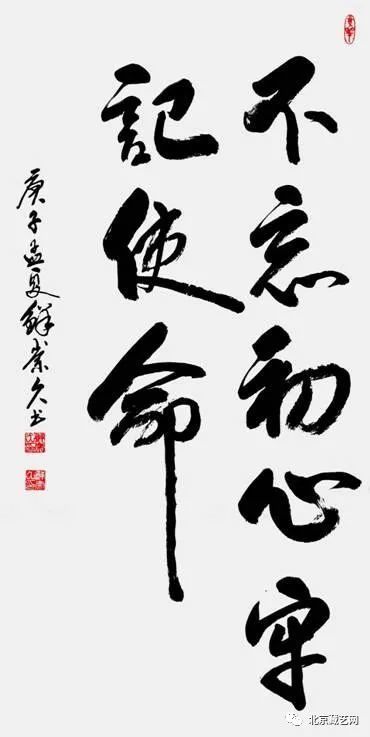 不忘初心牢
記使命
庚子孟夏鲜業久书
北京藏艺网